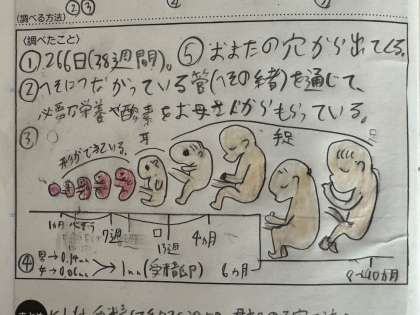 〈調べる方法〉
②③
〈調べたこと〉
①266日(38週間)。⑤おまたの穴から出てくる。
②へそにつながっている管(へその緒)を通じて、
必要な栄養や酸素をお母さんからもらっている。
③
形ができている。
耳
手足
口
1ヵ月
7週
口
13週
4ヵ月
6ヵ月
8〜10ヵ月
④
男→0.
女→0.
1mm(受精卵)